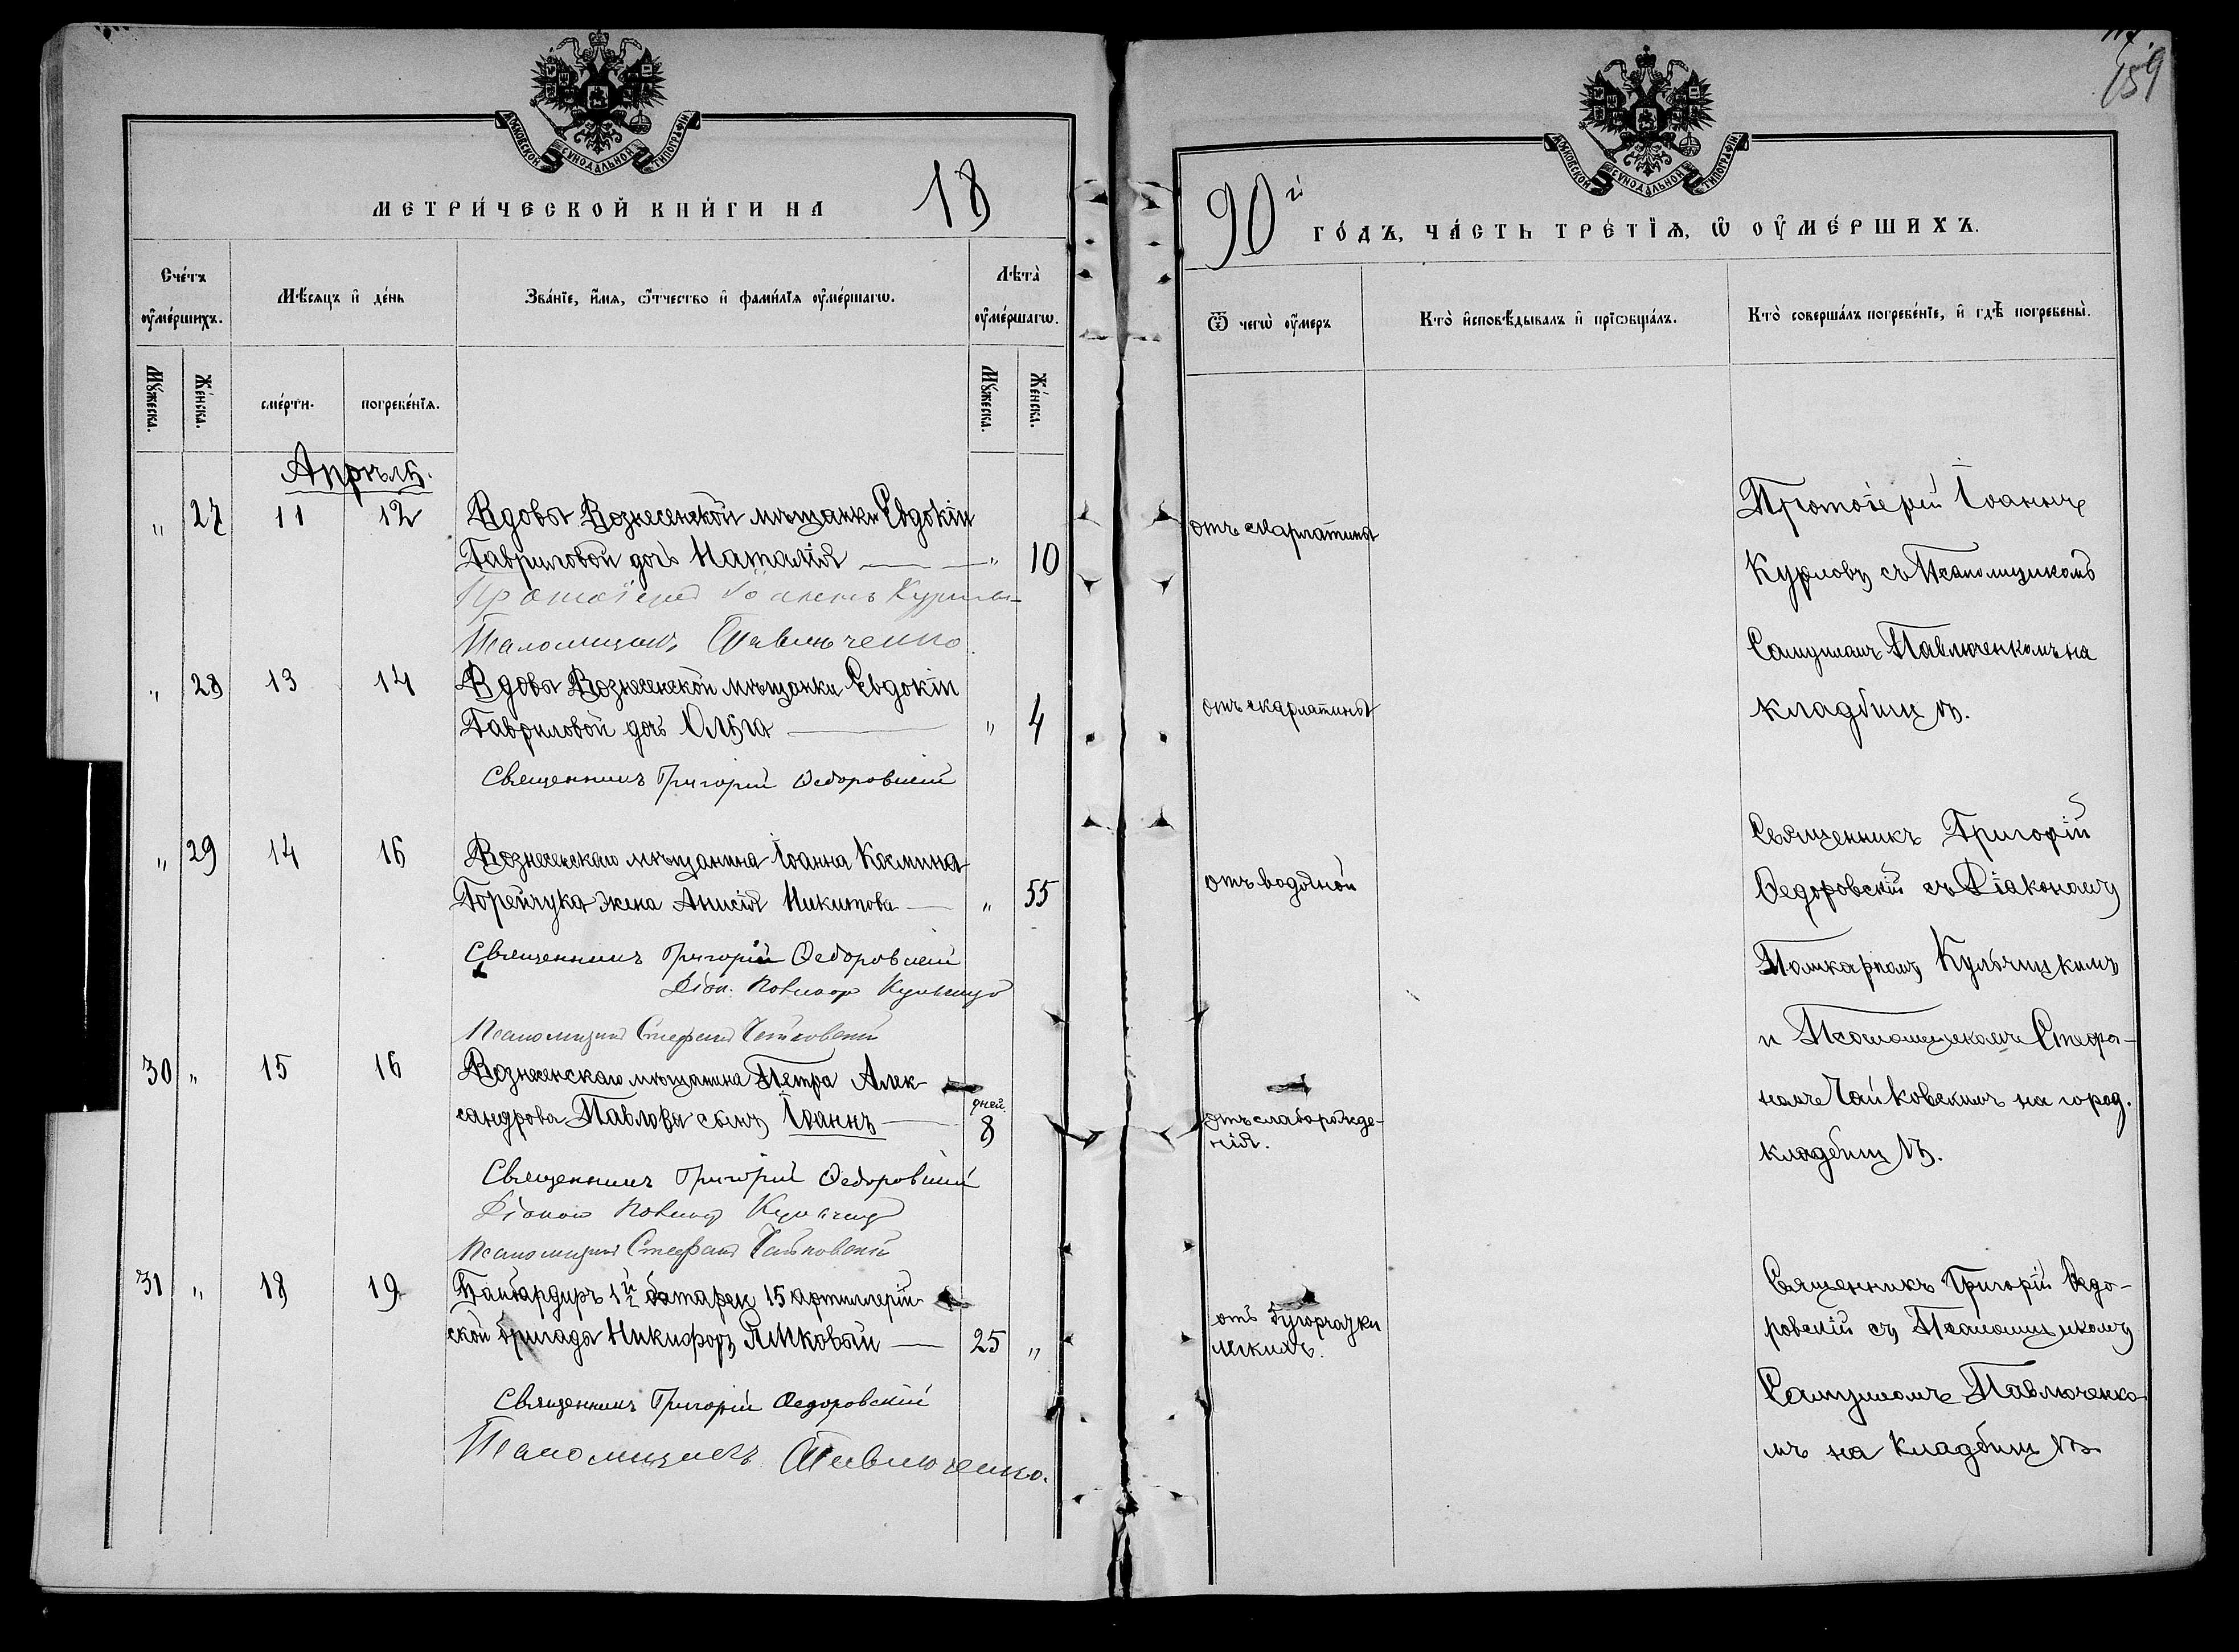 МОСКОВСКОЙ СѴНОДАЛЬНОЙ ТИПОГРАФІИ
МЕТРИ́ЧЕСКОЙ КНИ́ГИ НА 18
Сче́тъ оу҆ме́ршихъ.
Мѣ́сяцъ и҆ де́нь
Зва́нїе, и҆́мя, ѻ҆́тчество и҆ фами́лїя оу҆ме́ршагѡ.
Лѣта̀ оу҆ме́ршагѡ.
Мꙋ́жеска.
Же́нска.
сме́рти.
погребе́нїя.
Мꙋ́жеска.
Же́нска.
Апрѣль.
„ 27 11 12 Вдовы Вознесенской мѣщанки Евдокіи
Гавриловой дочь Наталія — „ 10
Протоіерей Іоаннъ Курловъ
Псаломщикъ Павлюченко.
„ 28 13 14 Вдовы Вознесенской мѣщанки Евдокіи
Гавриловой дочь Ольга — „ 4
Священникъ Григорій Ѳедоровскій
„ 29 14 16 Вознесенскаго мѣщанина Іоанна Космина
Горейчука жена Анисія Никитова — „ 55
Священникъ Григорій Ѳедоровскій
Діак. Кульчицк
Псаломщикъ Стефанъ Чайковскій
30 „ 15 16 Вознесенскаго мѣщанина Петра Алек-
сандрова Павлова сынъ Іоаннъ — дней 8
Священникъ Григорій Ѳедоровскій
Діаконъ Кульчиц
Псаломщикъ Стефанъ Чайковскій
31 „ 18 19 Бамбардиръ 1й батареи 15 артиллерій-
ской бригады Никифоръ — 25 „
Священникъ Григорій Ѳедоровскій
Псаломщикъ Павлюченко.
159
МОСКОВСКОЙ СѴНОДАЛЬНОЙ ТИПОГРАФІИ
90й ГО́ДЪ, ЧА́СТЬ ТРЕ́ТЇѦ, Ѡ҆ ОУ҆МЕ́РШИХЪ.
Ѿ чегѡ̀ оу҆́меръ
Кто̀ и҆сповѣ́дывалъ и҆ прїѡбща́лъ.
Кто̀ соверша́лъ погребе́нїе, и҆ гдѣ̀ погребены̀.
отъ скарлатины
Протоіерей Іоаннъ
Курловъ съ Псаломщикомъ
Самуиломъ Павлюченкомъ на
кладбищѣ.
отъ скарлатины
отъ водяной
Священникъ Григорій
Ѳедоровскій съ Діакономъ
Поликарпомъ Кульчицкимъ
и Псаломщикомъ Стефа-
номъ Чайковскимъ на город.
кладбищѣ.
отъ слаборожде-
нія.
отъ бугорчатки
легкихъ.
Священникъ Григорій Ѳедо-
ровскій съ Псаломщикомъ
Самуиломъ Павлюченко-
мъ на кладбищѣ